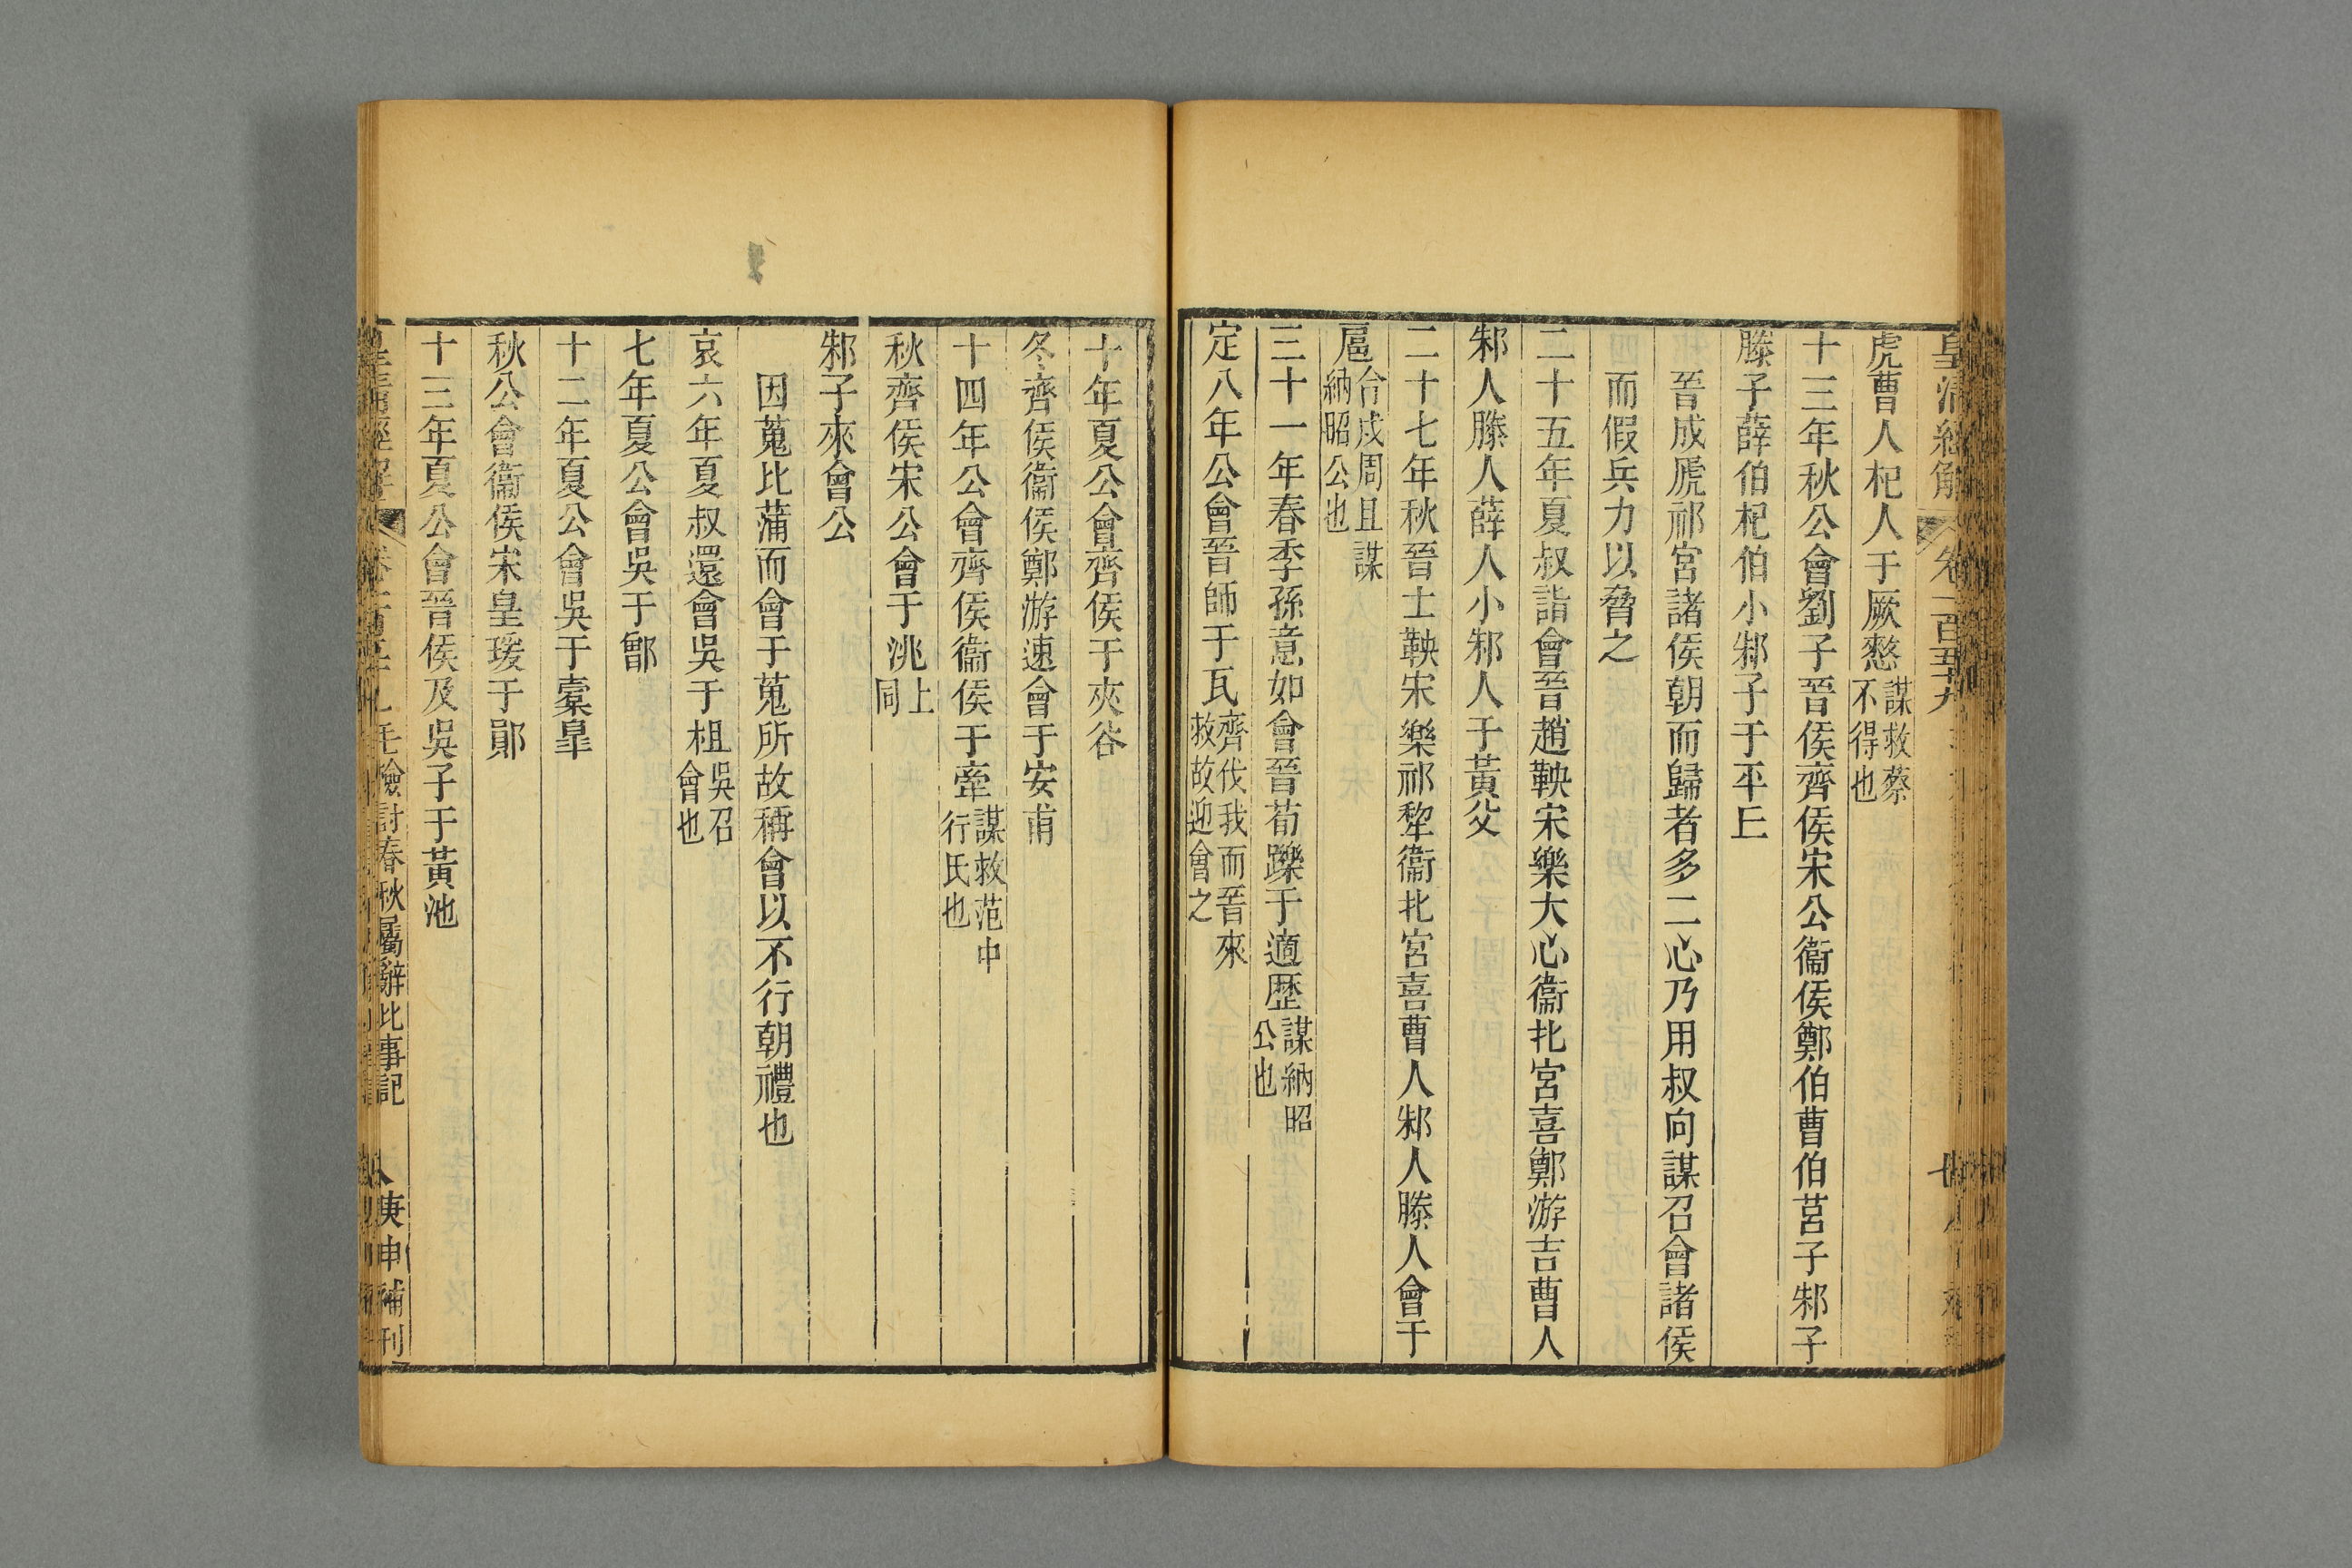 皇清經解 卷一百五十九
虎曹人杞人于厥憖謀救蔡不得也
十三年秋公會劉子晉侯齊侯宋公衞侯鄭伯曹伯莒子邾子
滕子薛伯杞伯小邾子于平丘
晉成虒祁宮諸侯朝而歸者多二心乃用叔向謀召會諸侯
而假兵力以脅之
二十五年夏叔詣會晉趙鞅宋樂大心衞北宮喜鄭游吉曹人
邾人滕人薛人小邾人于黃父
二十七年秋晉士鞅宋樂祁犂衞北宮喜曹人邾人滕人會于
扈合戍周且謀納昭公也
三十一年春季孫意如會晉荀躒于適歷謀納昭公也
定八年公會晉師于瓦齊伐我而晉來救故迎會之
十年夏公會齊侯于夾谷
冬齊侯衞侯鄭游速會于安甫
十四年公會齊侯衞侯于牽謀救范中行氏也
秋齊侯宋公會于洮上同
邾子來會公
因蒐比蒲而會于蒐所故稱會以不行朝禮也
哀六年夏叔還會吳于柤吳召會也
七年夏公會吳于鄫
十二年夏公會吳于橐皋
秋公會衞侯宋皇瑗于鄖
十三年夏公會晉侯及吳子于黃池
皇清經解 卷一百五十九 毛檢討春秋屬辭比事記 八 庚申補刊